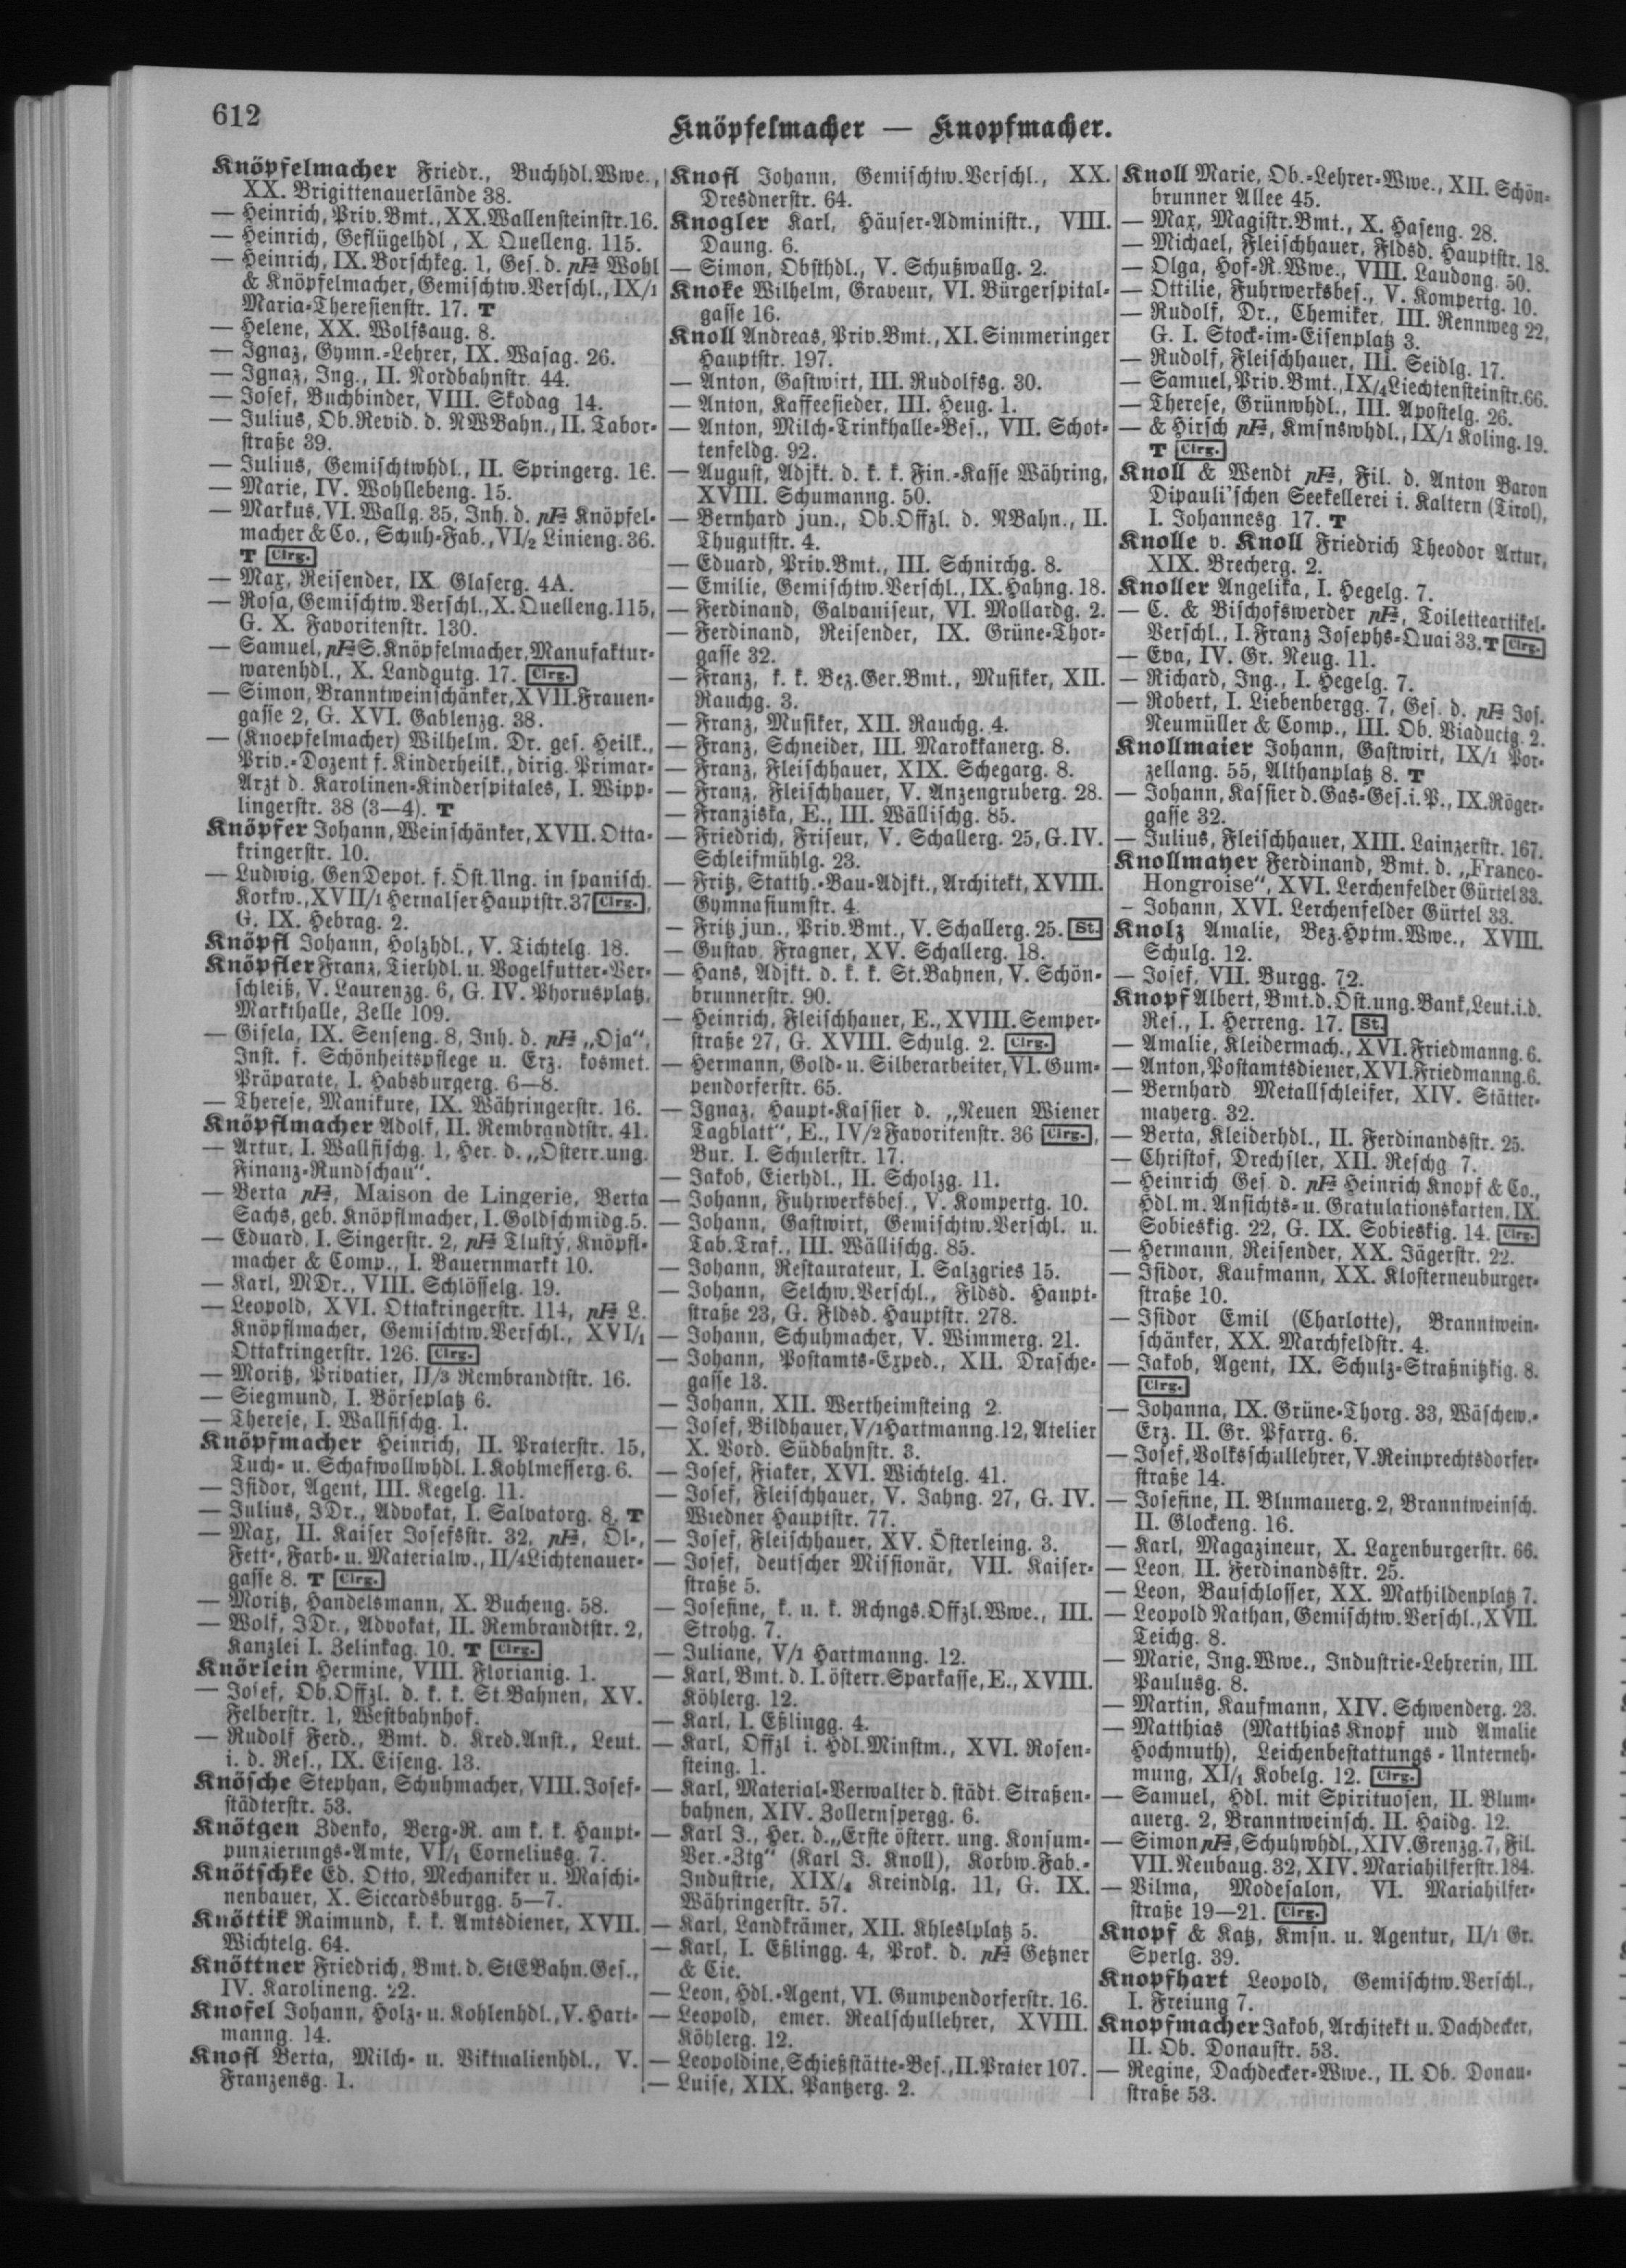 612
Knöpfelmacher — Knopfmacher.
Knöpfelmacher Friedr., Buchhdl.Wwe.,
XX. Brigittenauerlände 38.
— Heinrich, Priv.Bmt., XX. Wallensteinstr. 16.
— Heinrich, Geflügelhdl, X. Quelleng. 115.
— Heinrich, IX. Borschkeg. 1, Ges. d. pF Wohl
& Knöpfelmacher, Gemischtw.Verschl., IX/1
Maria-Theresienstr. 17. T
— Helene, XX. Wolfsaug. 8.
— Ignaz, Gymn.-Lehrer, IX. Wasag. 26.
— Ignaz, Ing., II. Nordbahnstr. 44.
— Josef, Buchbinder, VIII. Skodag 14.
— Julius, Ob.Revid. d. NWBahn., II. Tabor-
straße 39.
— Julius, Gemischtwhdl., II. Springerg. 16.
— Marie, IV. Wohllebeng. 15.
— Markus, VI. Wallg. 35, Inh. d. pF Knöpfel-
macher & Co., Schuh-Fab., VI/2 Linieng. 36.
T Clrg.
— Max, Reisender, IX. Glaserg. 4A.
— Rosa, Gemischtw. Verschl., X. Quelleng. 115,
G. X. Favoritenstr. 130.
— Samuel, pF S. Knöpfelmacher, Manufaktur-
warenhdl., X. Landgutg. 17. Clrg.
— Simon, Branntweinschänker, XVII. Frauen-
gasse 2, G. XVI. Gablenzg. 38.
— (Knoepfelmacher) Wilhelm. Dr. ges. Heilk.,
Priv.-Dozent f. Kinderheilk., dirig. Primar-
Arzt d. Karolinen-Kinderspitales, I. Wipp-
lingerstr. 38 (3—4). T
Knöpfer Johann, Weinschänker, XVII. Otta-
kringerstr. 10.
— Ludwig, GenDepot. f. Öst.Ung. in spanisch.
Korkw., XVII/1 Hernalser Hauptstr. 37 Clrg.,
G. IX. Hebrag. 2.
Knöpfl Johann, Holzhdl., V. Tichtelg. 18.
Knöpfler Franz, Tierhdl. u. Vogelfutter-Ver-
schleiß, V. Laurenzg. 6, G. IV. Phorusplatz,
Markthalle, Zelle 109.
— Gisela, IX. Senseng. 8, Inh. d. pF „Oja“,
Inst. f. Schönheitspflege u. Erz. kosmet.
Präparate, I. Habsburgerg. 6—8.
— Therese, Manikure, IX. Währingerstr. 16.
Knöpflmacher Adolf, II. Rembrandtstr. 41.
— Artur, I. Wallfischg. 1, Her. d. „Österr.ung.
Finanz-Rundschau“.
— Berta pF, Maison de Lingerie, Berta
Sachs, geb. Knöpflmacher, I. Goldschmidg. 5.
— Eduard, I. Singerstr. 2, pF Tlustý, Knöpfl-
macher & Comp., I. Bauernmarkt 10.
— Karl, MDr., VIII. Schlösselg. 19.
— Leopold, XVI. Ottakringerstr. 114, pF L.
Knöpflmacher, Gemischtw.Verschl., XVI/1
Ottakringerstr. 126. Clrg.
— Moritz, Privatier, II/3 Rembrandtstr. 16.
— Siegmund, I. Börseplatz 6.
— Therese, I. Wallfischg. 1.
Knöpfmacher Heinrich, II. Praterstr. 15,
Tuch- u. Schafwollwhdl. I. Kohlmesserg. 6.
— Isidor, Agent, III. Kegelg. 11.
— Julius, JDr., Advokat, I. Salvatorg. 8. T
— Max, II. Kaiser Josefsstr. 32, pF, Öl-,
Fett-, Farb- u. Materialw., II/4 Lichtenauer-
gasse 8. T Clrg.
— Moritz, Handelsmann, X. Bucheng. 58.
— Wolf, JDr., Advokat, II. Rembrandtstr. 2,
Kanzlei I. Zelinkag. 10. T Clrg.
Knörlein Hermine, VIII. Florianig. 1.
— Josef, Ob.Offzl. d. k. k. St.Bahnen, XV.
Felberstr. 1, Westbahnhof.
— Rudolf Ferd., Bmt. d. Kred.Anst., Leut.
i. d. Res., IX. Eiseng. 13.
Knösche Stephan, Schuhmacher, VIII. Josef-
städterstr. 53.
Knötgen Zdenko, Berg-R. am k. k. Haupt-
punzierungs-Amte, VI/1 Corneliusg. 7.
Knötschke Ed. Otto, Mechaniker u. Maschi-
nenbauer, X. Siccardsburgg. 5—7.
Knöttik Raimund, k. k. Amtsdiener, XVII.
Wichtelg. 64.
Knöttner Friedrich, Bmt. d. StEBahn.Ges.,
IV. Karolineng. 22.
Knofel Johann, Holz- u. Kohlenhdl., V. Hart-
manng. 14.
Knofl Berta, Milch- u. Viktualienhdl., V.
Franzensg. 1.
Knofl Johann, Gemischtw.Verschl., XX.
Dresdnerstr. 64.
Knogler Karl, Häuser-Administr., VIII.
Daung. 6.
— Simon, Obsthdl., V. Schußwallg. 2.
Knoke Wilhelm, Graveur, VI. Bürgerspital-
gasse 16.
Knoll Andreas, Priv.Bmt., XI. Simmeringer
Hauptstr. 197.
— Anton, Gastwirt, III. Rudolfsg. 30.
— Anton, Kaffeesieder, III. Heug. 1.
— Anton, Milch-Trinkhalle-Bes., VII. Schot-
tenfeldg. 92.
— August, Adjkt. d. k. k. Fin.-Kasse Währing,
XVIII. Schumanng. 50.
— Bernhard jun., Ob.Offzl. d. NBahn., II.
Thugutstr. 4.
— Eduard, Priv.Bmt., III. Schnirchg. 8.
— Emilie, Gemischtw.Verschl., IX. Hahng. 18.
— Ferdinand, Galvaniseur, VI. Mollardg. 2.
— Ferdinand, Reisender, IX. Grüne-Thor-
gasse 32.
— Franz, k. k. Bez.Ger.Bmt., Musiker, XII.
Rauchg. 3.
— Franz, Musiker, XII. Rauchg. 4.
— Franz, Schneider, III. Marokkanerg. 8.
— Franz, Fleischhauer, XIX. Schegarg. 8.
— Franz, Fleischhauer, V. Anzengruberg. 28.
— Franziska, E., III. Wällischg. 85.
— Friedrich, Friseur, V. Schallerg. 25, G. IV.
Schleifmühlg. 23.
— Fritz, Statth.-Bau-Adjkt., Architekt, XVIII.
Gymnasiumstr. 4.
— Fritz jun., Priv.Bmt., V. Schallerg. 25. St.
— Gustav, Fragner, XV. Schallerg. 18.
— Hans, Adjkt. d. k. k. St.Bahnen, V. Schön-
brunnerstr. 90.
— Heinrich, Fleischhauer, E., XVIII. Semper-
straße 27, G. XVIII. Schulg. 2. Clrg.
— Hermann, Gold- u. Silberarbeiter, VI. Gum-
pendorferstr. 65.
— Ignaz, Haupt-Kassier d. „Neuen Wiener
Tagblatt“, E., IV/2 Favoritenstr. 36 Clrg.,
Bur. I. Schulerstr. 17.
— Jakob, Eierhdl., II. Scholzg. 11.
— Johann, Fuhrwerksbes., V. Kompertg. 10.
— Johann, Gastwirt, Gemischtw.Verschl. u.
Tab.Traf., III. Wällischg. 85.
— Johann, Restaurateur, I. Salzgries 15.
— Johann, Selchw.Verschl., Fldsd. Haupt-
straße 23, G. Fldsd. Hauptstr. 278.
— Johann, Schuhmacher, V. Wimmerg. 21.
— Johann, Postamts-Exped., XII. Drasche-
gasse 13.
— Johann, XII. Wertheimsteing 2.
— Josef, Bildhauer, V/1 Hartmanng. 12, Atelier
X. Vord. Südbahnstr. 3.
— Josef, Fiaker, XVI. Wichtelg. 41.
— Josef, Fleischhauer, V. Jahng. 27, G. IV.
Wiedner Hauptstr. 77.
— Josef, Fleischhauer, XV. Österleing. 3.
— Josef, deutscher Missionär, VII. Kaiser-
straße 5.
— Josefine, k. u. k. Rchngs.Offzl.Wwe., III.
Strohg. 7.
— Juliane, V/1 Hartmanng. 12.
— Karl, Bmt. d. I. österr. Sparkasse, E., XVIII.
Köhlerg. 12.
— Karl, I. Eßlingg. 4.
— Karl, Offzl i. Hdl.Minstm., XVI. Rosen-
steing. 1.
— Karl, Material-Verwalter d. städt. Straßen-
bahnen, XIV. Zollernspergg. 6.
— Karl J., Her. d. „Erste österr. ung. Konsum-
Ver.-Ztg“ (Karl J. Knoll), Korbw.Fab.-
Industrie, XIX/4 Kreindlg. 11, G. IX.
Währingerstr. 57.
— Karl, Landkrämer, XII. Khleslplatz 5.
— Karl, I. Eßlingg. 4, Prok. d. pF Getzner
& Cie.
— Leon, Hdl.-Agent, VI. Gumpendorferstr. 16.
— Leopold, emer. Realschullehrer, XVIII.
Köhlerg. 12.
— Leopoldine, Schießstätte-Bes., II. Prater 107.
— Luise, XIX. Pantzerg. 2.
Knoll Marie, Ob.-Lehrer-Wwe., XII. Schön-
brunner Allee 45.
— Max, Magistr.Bmt., X. Haseng. 28.
— Michael, Fleischhauer, Fldsd. Hauptstr. 18.
— Olga, Hof-R.Wwe., VIII. Laudong. 50.
— Ottilie, Fuhrwerksbes., V. Kompertg. 10.
— Rudolf, Dr., Chemiker, III. Rennweg 22,
G. I. Stock-im-Eisenplatz 3.
— Rudolf, Fleischhauer, III. Seidlg. 17.
— Samuel, Priv.Bmt., IX/4 Liechtensteinstr. 66.
— Therese, Grünwhdl., III. Apostelg. 26.
— & Hirsch pF, Kmsnswhdl., IX/1 Koling. 19.
T Clrg.
Knoll & Wendt pF, Fil. d. Anton Baron
Dipauli'schen Seekellerei i. Kaltern (Tirol),
I. Johannesg 17. T
Knolle v. Knoll Friedrich Theodor Artur,
XIX. Brecherg. 2.
Knoller Angelika, I. Hegelg. 7.
— C. & Bischofswerder pF, Toiletteartikel-
Verschl., I. Franz Josephs-Quai 33. T Clrg.
— Eva, IV. Gr. Neug. 11.
— Richard, Ing., I. Hegelg. 7.
— Robert, I. Liebenbergg. 7, Ges. d. pF Jos.
Neumüller & Comp., III. Ob. Viaductg. 2.
Knollmaier Johann, Gastwirt, IX/1 Por-
zellang. 55, Althanplatz 8. T
— Johann, Kassier d. Gas-Ges. i. P., IX. Röger-
gasse 32.
— Julius, Fleischhauer, XIII. Lainzerstr. 167.
Knollmayer Ferdinand, Bmt. d. „Franco-
Hongroise“, XVI. Lerchenfelder Gürtel 33.
— Johann, XVI. Lerchenfelder Gürtel 33.
Knolz Amalie, Bez.Hptm.Wwe., XVIII.
Schulg. 12.
— Josef, VII. Burgg. 72.
Knopf Albert, Bmt. d. Öst.ung. Bank, Leut. i. d.
Res., I. Herreng. 17. St.
— Amalie, Kleidermach., XVI. Friedmanng. 6.
— Anton, Postamtsdiener, XVI. Friedmanng. 6.
— Bernhard Metallschleifer, XIV. Stätter-
mayerg. 32.
— Berta, Kleiderhdl., II. Ferdinandsstr. 25.
— Christof, Drechsler, XII. Reschg 7.
— Heinrich Ges. d. pF Heinrich Knopf & Co.,
Hdl. m. Ansichts- u. Gratulationskarten, IX.
Sobieskig. 22, G. IX. Sobieskig. 14. Clrg.
— Hermann, Reisender, XX. Jägerstr. 22.
— Isidor, Kaufmann, XX. Klosterneuburger-
straße 10.
— Isidor Emil (Charlotte), Branntwein-
schänker, XX. Marchfeldstr. 4.
— Jakob, Agent, IX. Schulz-Straßnitzkig. 8.
Clrg.
— Johanna, IX. Grüne-Thorg. 33, Wäschew.-
Erz. II. Gr. Pfarrg. 6.
— Josef, Volksschullehrer, V. Reinprechtsdorfer-
straße 14.
— Josefine, II. Blumauerg. 2, Branntweinsch.
II. Glockeng. 16.
— Karl, Magazineur, X. Laxenburgerstr. 66.
— Leon, II. Ferdinandsstr. 25.
— Leon, Bauschlosser, XX. Mathildenplatz 7.
— Leopold Nathan, Gemischtw.Verschl., XVII.
Teichg. 8.
— Marie, Ing.Wwe., Industrie-Lehrerin, III.
Paulusg. 8.
— Martin, Kaufmann, XIV. Schwenderg. 23.
— Matthias (Matthias Knopf und Amalie
Hochmuth), Leichenbestattungs-Unterneh-
mung, XI/1 Kobelg. 12. Clrg.
— Samuel, Hdl. mit Spirituosen, II. Blum-
auerg. 2, Branntweinsch. II. Haidg. 12.
— Simon pF, Schuhwhdl., XIV. Grenzg. 7, Fil.
VII. Neubaug. 32, XIV. Mariahilferstr. 184.
— Vilma, Modesalon, VI. Mariahilfer-
straße 19—21. Clrg.
Knopf & Katz, Kmsn. u. Agentur, II/1 Gr.
Sperlg. 39.
Knopfhart Leopold, Gemischtw.Verschl.,
I. Freiung 7.
Knopfmacher Jakob, Architekt u. Dachdecker,
II. Ob. Donaustr. 53.
— Regine, Dachdecker-Wwe., II. Ob. Donau-
straße 53.